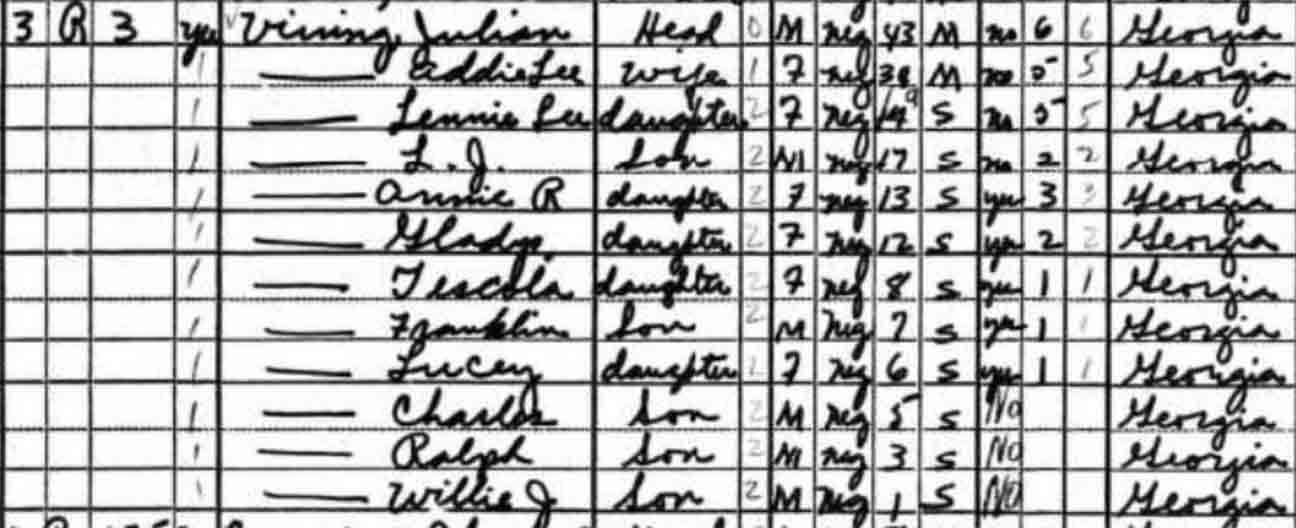 3 R 3 yes Vining, Julian Head 0 M neg 43 M no 6 6 Georgia
1 —— Addie Lee wife 1 F neg 38 M no 5 5 Georgia
1 —— Lennie Lee daughter 2 F neg 19 S no 5 5 Georgia
1 —— L. J. Son 2 M neg 17 S no 2 2 Georgia
1 —— Annie R daughter 2 F neg 13 S yes 3 3 Georgia
1 —— Gladys daughter 2 F neg 12 S yes 2 2 Georgia
1 —— Tescola daughter 2 F neg 8 S yes 1 1 Georgia
1 —— Franklin Son 2 M neg 7 S yes 1 1 Georgia
1 —— Lucey daughter F neg 6 S yes 1 1 Georgia
1 —— Charles Son 2 M neg 5 S No Georgia
1 —— Ralph Son 2 M neg 3 S No Georgia
1 —— Willie J Son 2 M neg 1 S No Georgia